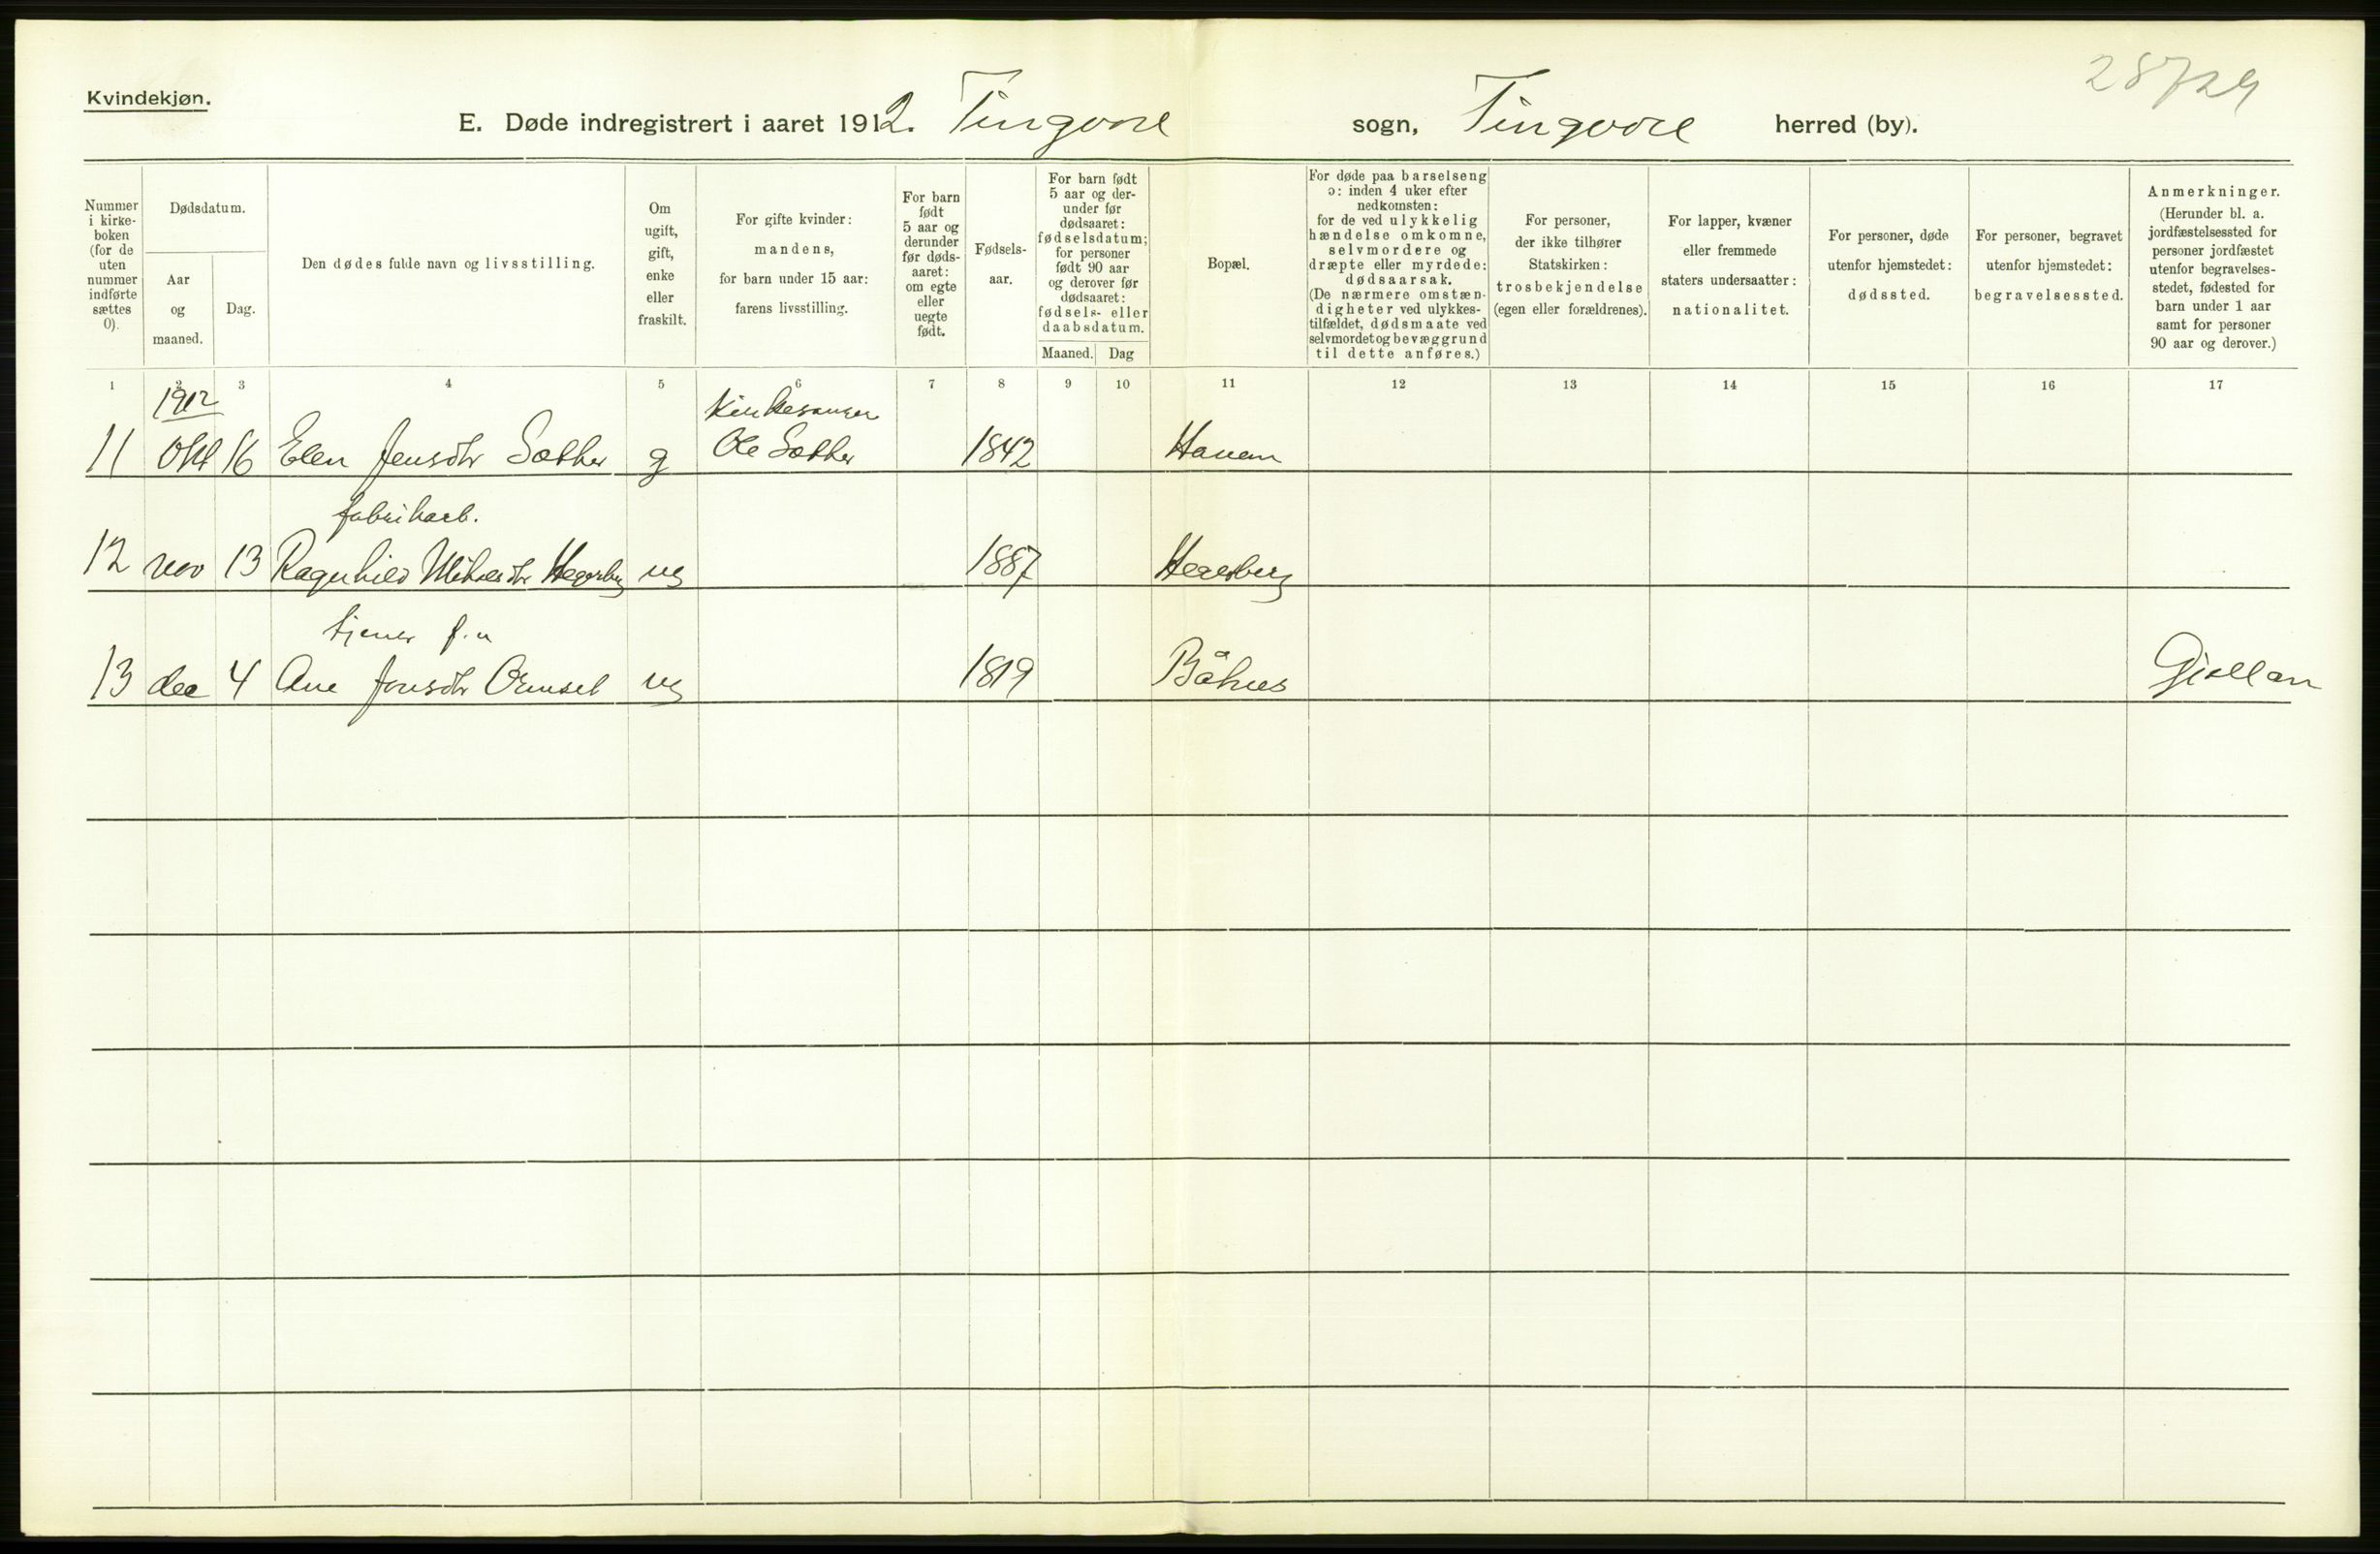 Kvindekjøn.
28729
E. Døde indregistrert i aaret 1912. Tingvoll sogn, Tingvoll herred (by).
Nummer i kirke-boken (for de uten nummer indførte sættes 0).
Dødsdatum.
Aar og maaned.
Dag.
Den dødes fulde navn og livsstilling.
Om ugift, gift, enke eller fraskilt.
For gifte kvinder: mandens, for barn under 15 aar: farens livsstilling.
For barn født 5 aar og derunder før døds-aaret: om egte eller uegte født.
Fødsels-aar.
For barn født 5 aar og der-under før dødsaaret: fødselsdatum; for personer født 90 aar og derover før dødsaaret: fødsels- eller daabsdatum.
Maaned. Dag
Bopæl.
For døde paa barselseng ɔ: inden 4 uker efter nedkomsten: for de ved ulykkelig hændelse omkomne, selvmordere og dræpte eller myrdede: dødsaarsak. (De nærmere omstæn-digheter ved ulykkes-tilfældet, dødsmaate ved selvmordet og bevæggrund til dette anføres.)
For personer, der ikke tilhører Statskirken: trosbekjendelse (egen eller forældrenes).
For lapper, kvæner eller fremmede staters undersaatter: nationalitet.
For personer, døde utenfor hjemstedet: dødssted.
For personer, begravet utenfor hjemstedet: begravelsessted.
Anmerkninger. (Herunder bl. a. jordfæstelsessted for personer jordfæstet utenfor begravelses-stedet, fødested for barn under 1 aar samt for personer 90 aar og derover.)
1 2 3 4 5 6 7 8 9 10 11 12 13 14 15 16 17
1912 Kirkesanger
11 Okt 16 Elen Jensdtr Sæther g Ole Sæther 1842 Hanem
fabrikarb.
12 nov 13 Ragnhild Hegerberg ug 1887 Hegerberg
tjener f.u
13 dec 4 Ane Jonsdtr ug 1819 Båhus